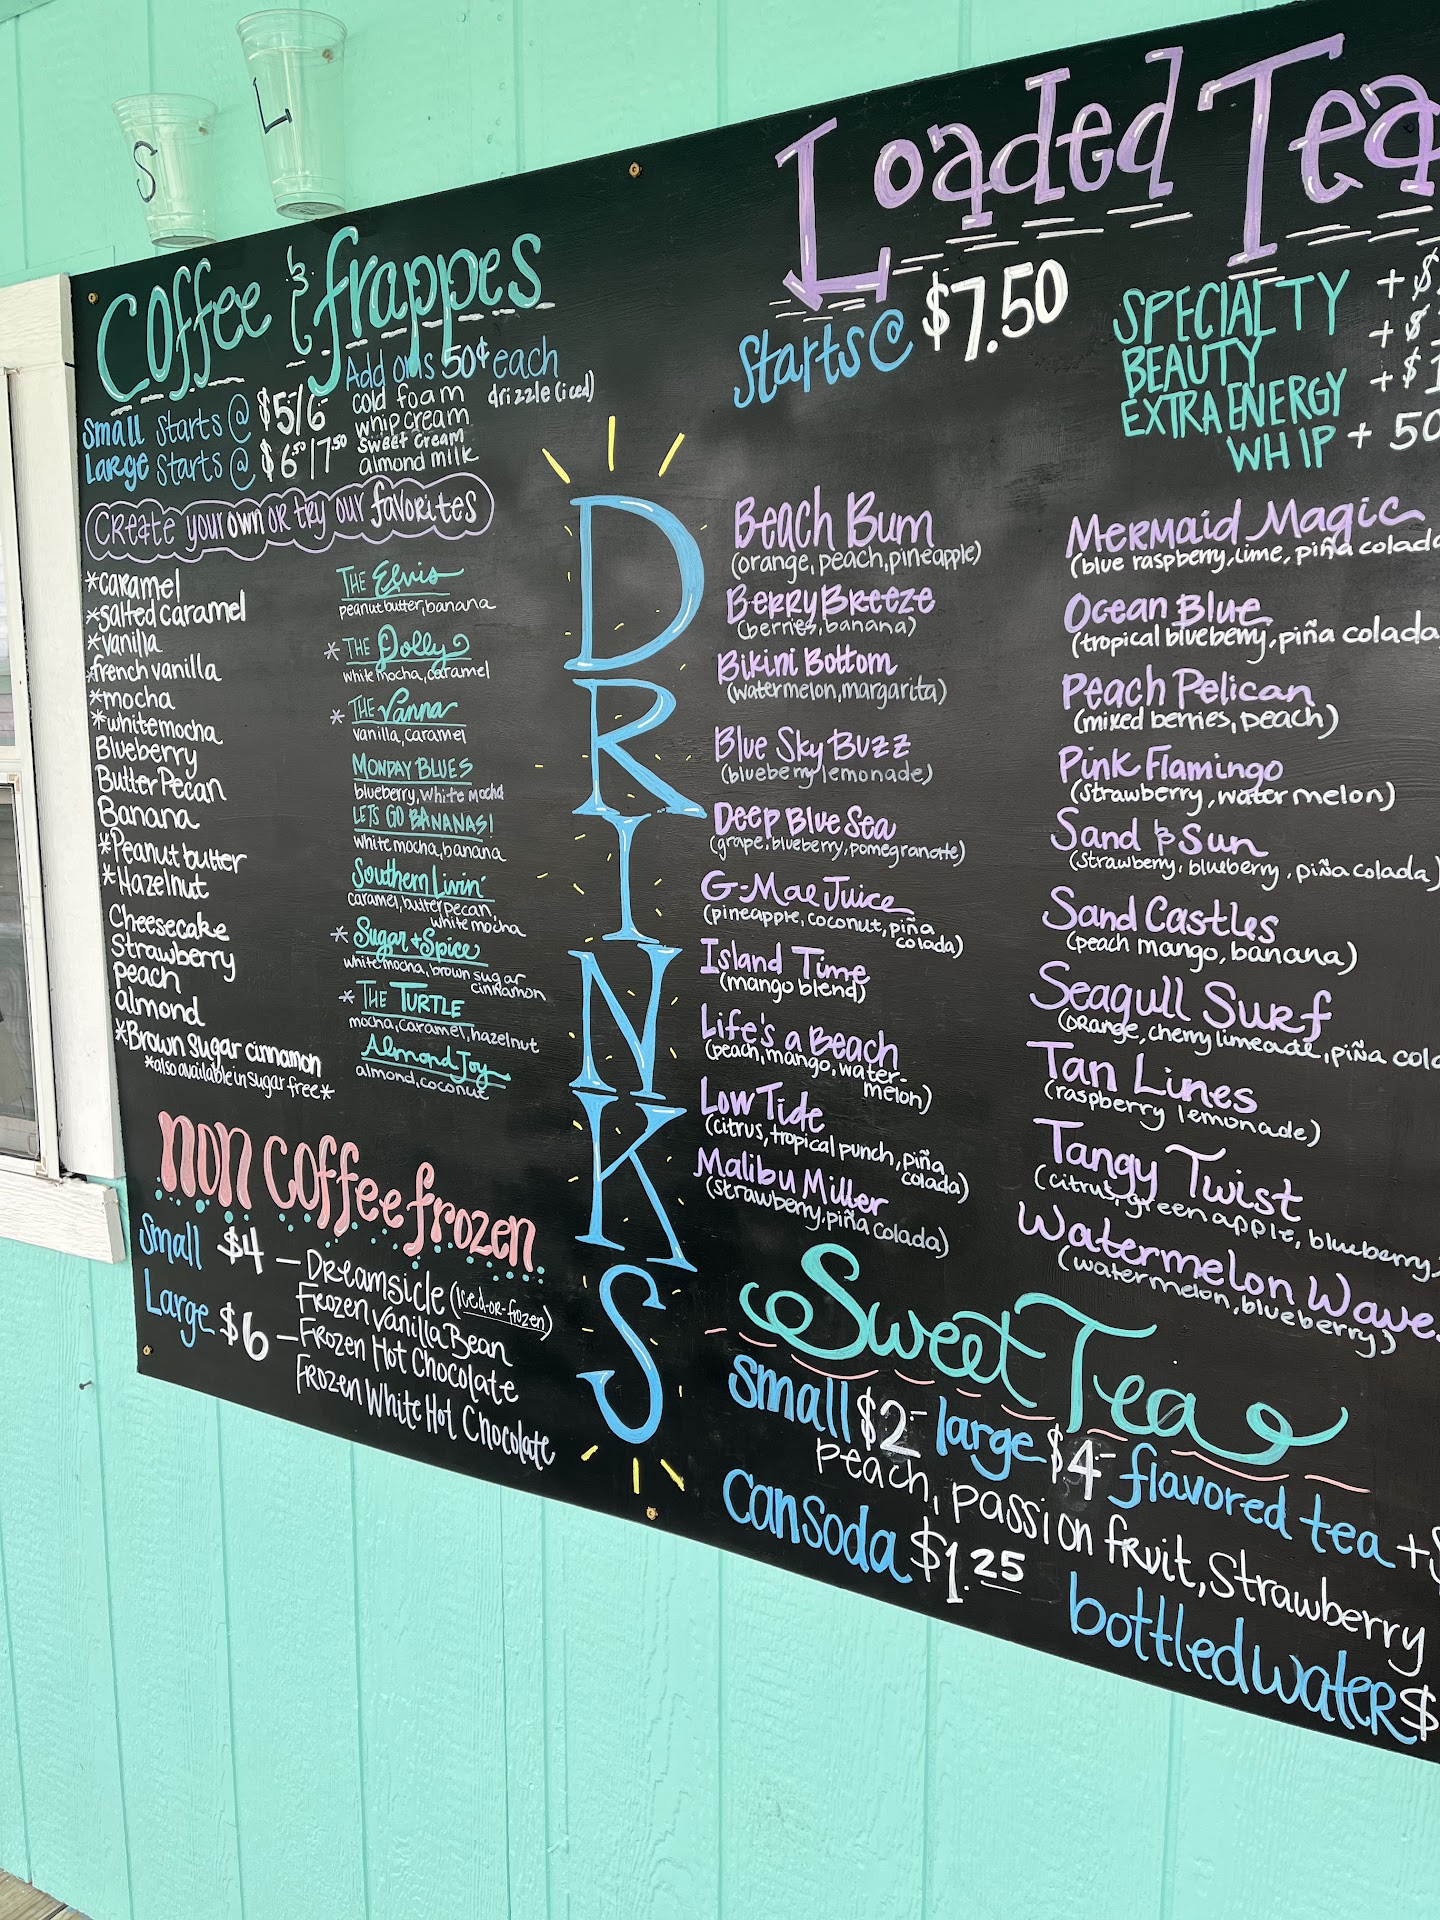 S
L
Coffee & frappes
Small Starts @ $5-/6-
Large Starts @ $6.50/7.50
Add ons 50¢ each
cold foam
drizzle (iced)
whip cream
sweet cream
almond milk
Create your own or try our favorites
*caramel
*salted caramel
*vanilla
*french vanilla
*mocha
*white mocha
Blueberry
Butter Pecan
Banana
*Peanut butter
*Hazelnut
Cheesecake
Strawberry
peach
almond
*Brown sugar cinnamon
*also available in sugar free*
The Elvis
peanut butter, banana
*The Dolly
white mocha, caramel
*The Vanna
vanilla, caramel
Monday Blues
blueberry, white mocha
Lets Go Bananas!
white mocha, banana
Southern Livin'
caramel, butter pecan,
white mocha
*Sugar + Spice
white mocha, brown sugar
cinnamon
*The Turtle
mocha, caramel, hazelnut
Almond Joy
almond, coconut
non coffee frozen
Small $4 – Dreamsicle (iced-or-frozen)
Frozen Vanilla Bean
Large $6 – Frozen Hot Chocolate
Frozen White Hot Chocolate
DRINKS
Loaded Tea
Starts @ $7.50
SPECIALTY + $
BEAUTY + $
EXTRA ENERGY + $1
WHIP + 50
Beach Bum
(orange, peach, pineapple)
Berry Breeze
(berries, banana)
Bikini Bottom
(watermelon, margarita)
Blue Sky Buzz
(blueberry lemonade)
Deep Blue Sea
(grape, blueberry, pomegranate)
G-Mae Juice
(pineapple, coconut, piña
colada)
Island Time
(mango blend)
Life's a Beach
(peach, mango, water-
melon)
Low Tide
(citrus, tropical punch, piña
colada)
Malibu Miller
(strawberry, piña colada)
Mermaid Magic
(blue raspberry, lime, piña colada
Ocean Blue
(tropical blueberry, piña colada
Peach Pelican
(mixed berries, peach)
Pink Flamingo
(strawberry, watermelon)
Sand & Sun
(strawberry, blueberry, piña colada)
Sand Castles
(peach mango, banana)
Seagull Surf
(orange, cherry limeade, piña cola
Tan Lines
(raspberry lemonade)
Tangy Twist
(citrus, green apple, blueberry)
Watermelon Wave
(watermelon, blueberry)
Sweet Tea
small $2- large $4- flavored tea + $
peach, passion fruit, strawberry
can soda $1.25
bottled water $